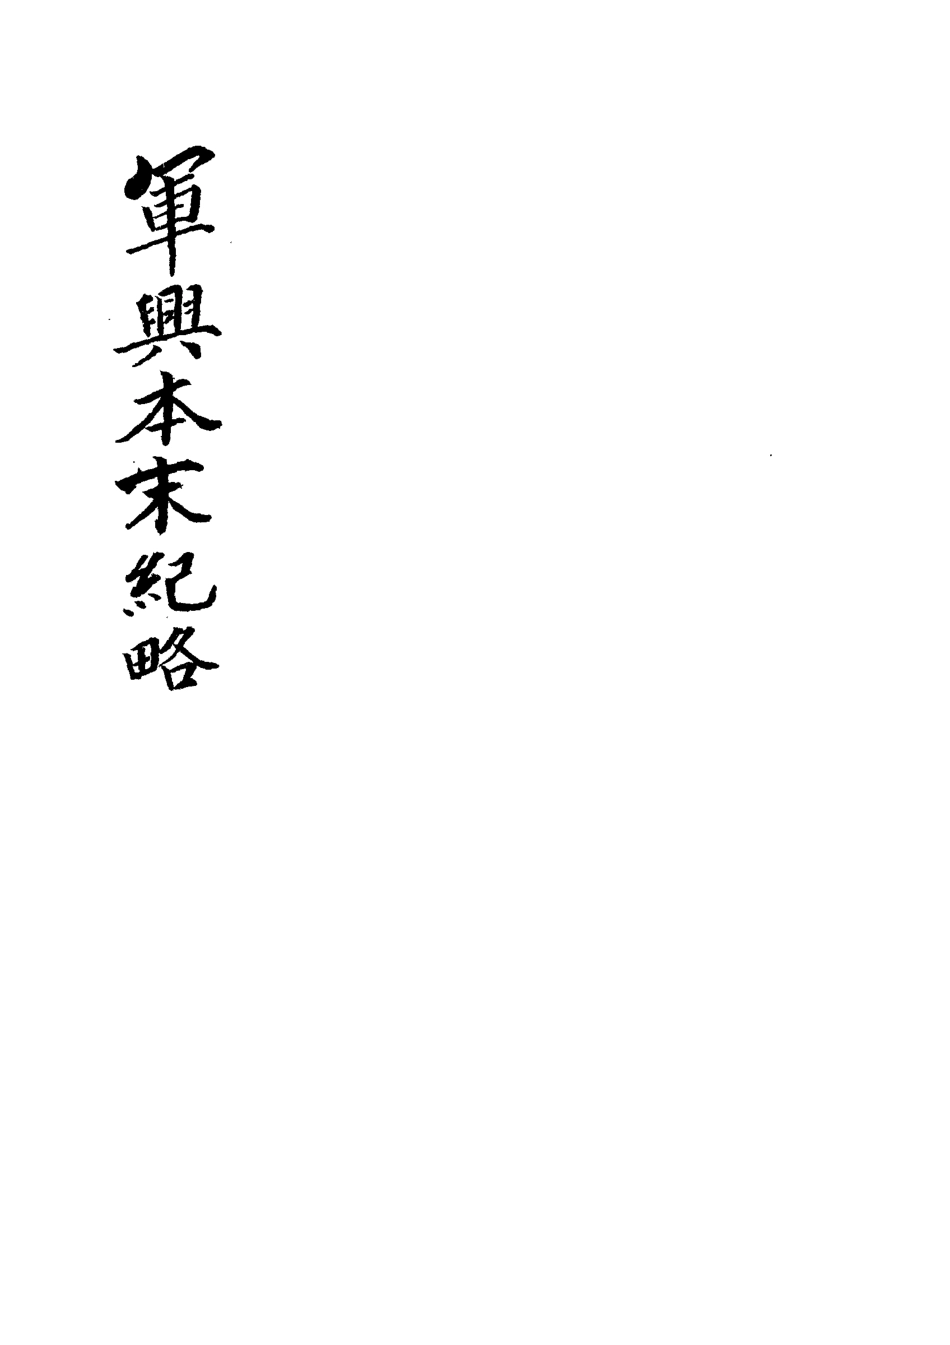 軍興本末紀略